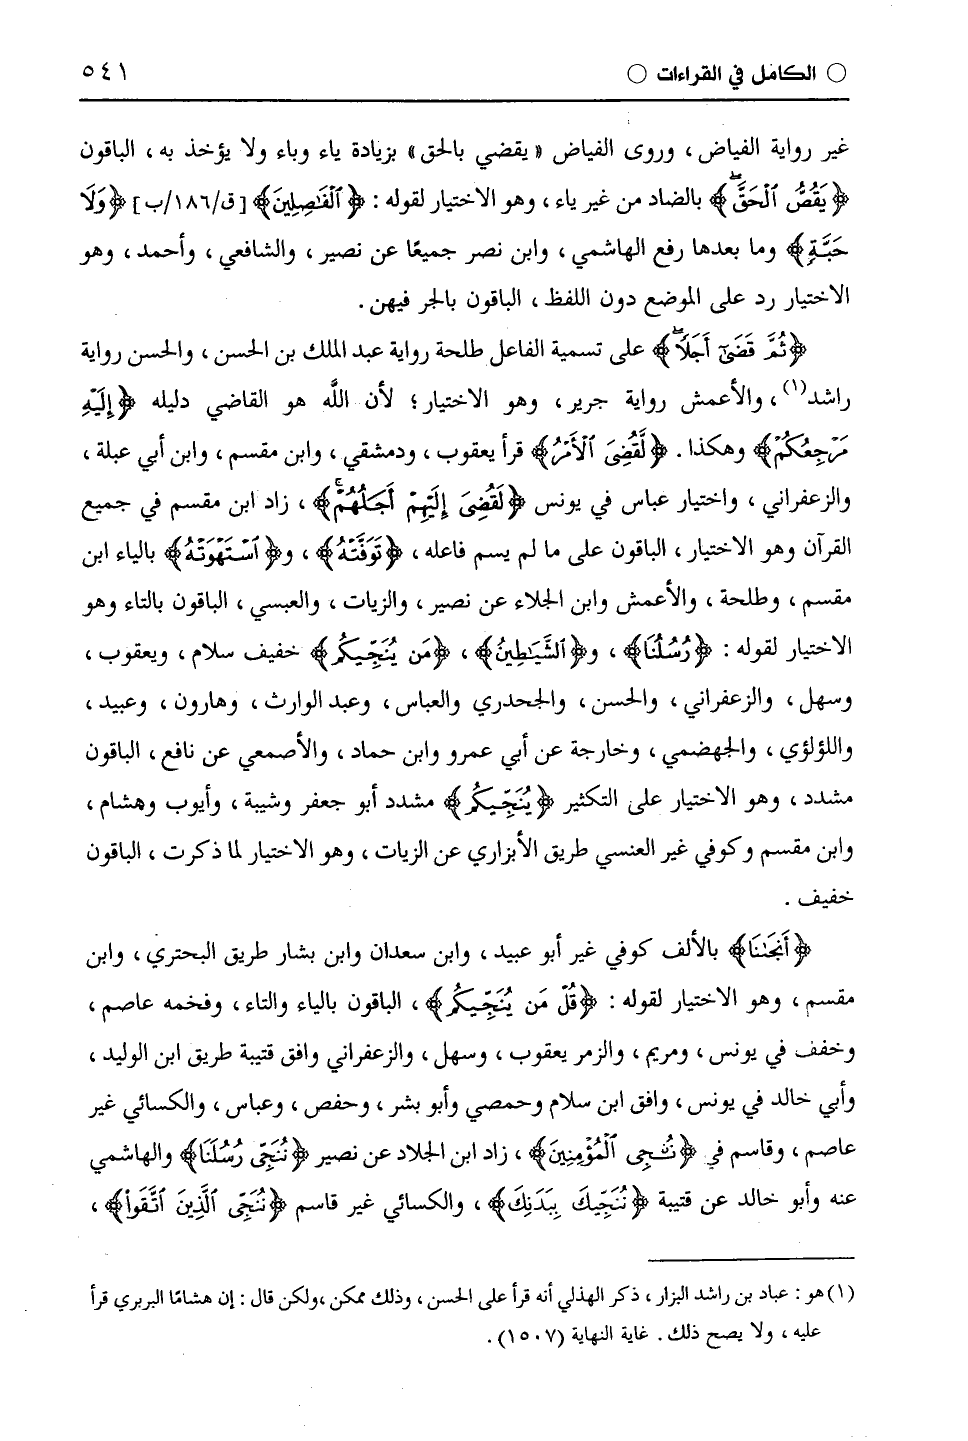 ○ الكامل في القراءات ○ ٥٤١
غير رواية الفياض، وروى الفياض «يقضي بالحق» بزيادة ياء وباء ولا يؤخذ به، الباقون
﴿يَقُصُّ ٱلْحَقَّۖ﴾ بالضاد من غير ياء، وهو الاختيار لقوله: ﴿ٱلْفَٰصِلِينَ﴾ [ق/١٨٦/ب] ﴿وَلَا
حَبَّةٍ﴾ وما بعدها رفع الهاشمي، وابن نصر جميعًا عن نصير، والشافعي، وأحمد، وهو
الاختيار رد على الموضع دون اللفظ، الباقون بالجر فيهن.
﴿ثُمَّ قَضَىٰٓ أَجَلًاۖ﴾ على تسمية الفاعل طلحة رواية عبد الملك بن الحسن، والحسن رواية
راشد(١)، والأعمش رواية جرير، وهو الاختيار؛ لأن اللَّه هو القاضي دليله ﴿إِلَيْهِ
مَرْجِعُكُمْ﴾ وهكذا. ﴿لَّقُضِىَ ٱلْأَمْرُ﴾ قرأ يعقوب، ودمشقي، وابن مقسم، وابن أبي عبلة،
والزعفراني، واختيار عباس في يونس ﴿لَقُضِىَ إِلَيْهِمْ أَجَلُهُمْۖ﴾، زاد ابن مقسم في جميع
القرآن وهو الاختيار، الباقون على ما لم يسم فاعله، ﴿تَوَفَّتْهُ﴾، و﴿ٱسْتَهْوَتْهُ﴾ بالياء ابن
مقسم، وطلحة، والأعمش وابن الجلاء عن نصير، والزيات، والعبسي، الباقون بالتاء وهو
الاختيار لقوله: ﴿رُسُلُنَا﴾، و﴿ٱلشَّيَٰطِينُ﴾، ﴿مَن يُنَجِّيكُم﴾ خفيف سلام، ويعقوب،
وسهل، والزعفراني، والحسن، والجحدري والعباس، وعبد الوارث، وهارون، وعبيد،
واللؤلؤي، والجهضمي، وخارجة عن أبي عمرو وابن حماد، والأصمعي عن نافع، الباقون
مشدد، وهو الاختيار على التكثير ﴿يُنَجِّيكُم﴾ مشدد أبو جعفر وشيبة، وأيوب وهشام،
وابن مقسم وكوفي غير العنسي طريق الأبزاري عن الزيات، وهو الاختيار لما ذكرت، الباقون
خفيف.
﴿أَنجَىٰنَا﴾ بالألف كوفي غير أبو عبيد، وابن سعدان وابن بشار طريق البحتري، وابن
مقسم، وهو الاختيار لقوله: ﴿قُلْ مَن يُنَجِّيكُم﴾، الباقون بالياء والتاء، وفخمه عاصم،
وخفف في يونس، ومريم، والزمر يعقوب، وسهل، والزعفراني وافق قتيبة طريق ابن الوليد،
وأبي خالد في يونس، وافق ابن سلام وحمصي وأبو بشر، وحفص، وعباس، والكسائي غير
عاصم، وقاسم في ﴿نُنجِى ٱلْمُؤْمِنِينَ﴾، زاد ابن الجلاد عن نصير ﴿نُنَجِّى رُسُلَنَا﴾ والهاشمي
عنه وأبو خالد عن قتيبة ﴿نُنَجِّيكَ بِبَدَنِكَ﴾، والكسائي غير قاسم ﴿نُنَجِّى ٱلَّذِينَ ٱتَّقَوا۟﴾،
(١) هو: عباد بن راشد البزار، ذكر الهذلي أنه قرأ على الحسن، وذلك ممكن، ولكن قال: إن هشامًا البربري قرأ
عليه، ولا يصح ذلك. غاية النهاية (١٥٠٧).